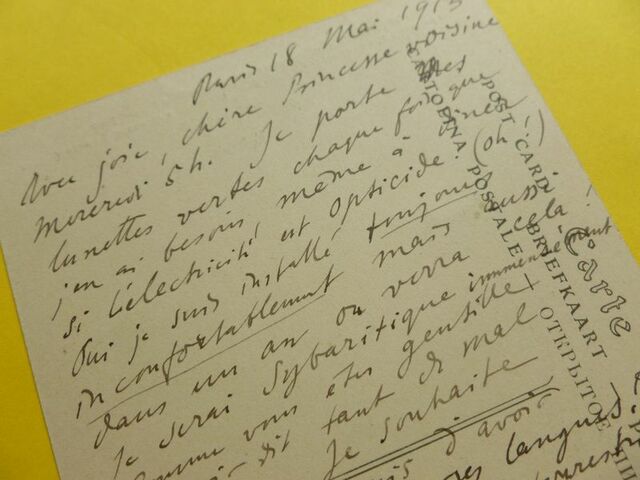 Paris 18 Mai 191
Avec joie, chère Princesse voisine
Mercredi 5h. Je porte mes
lunettes vertes chaque fois que
j'en ai besoin, même à dîner
si l'électricité est Opticide. (oh!)
Oui je suis installé toujours aussi
inconfortablement mais cela!
dans un an on verra
Je serai Sybaritique immensément
Comme vous êtes gentille
dit tant de mal
Je souhaite
d'avoir
langues
CARTOLINA POSTALE
POST CARD
BRIEFKAART
Carte
ОТКРЫТОЕ